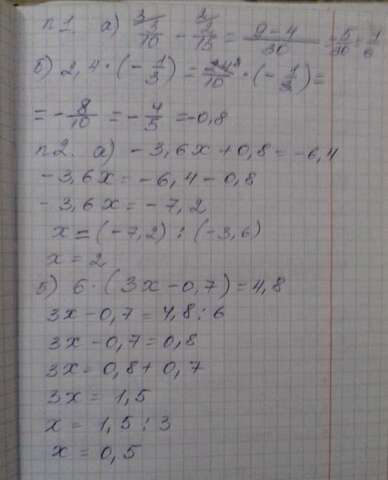 п1. а) 3/10 - 2/15 = 9-4/30 = 5/30 = 1/6
б) 2,4 · (-1/3) = 24/10 · (-1/3) =
= -8/10 = -4/5 = -0,8
п2. а) -3,6x+0,8=-6,4
-3,6x=-6,4-0,8
-3,6x=-7,2
x=(-7,2):(-3,6)
x=2
б) 6·(3x-0,7)=4,8
3x-0,7=4,8:6
3x-0,7=0,8
3x=0,8+0,7
3x=1,5
x=1,5:3
x=0,5